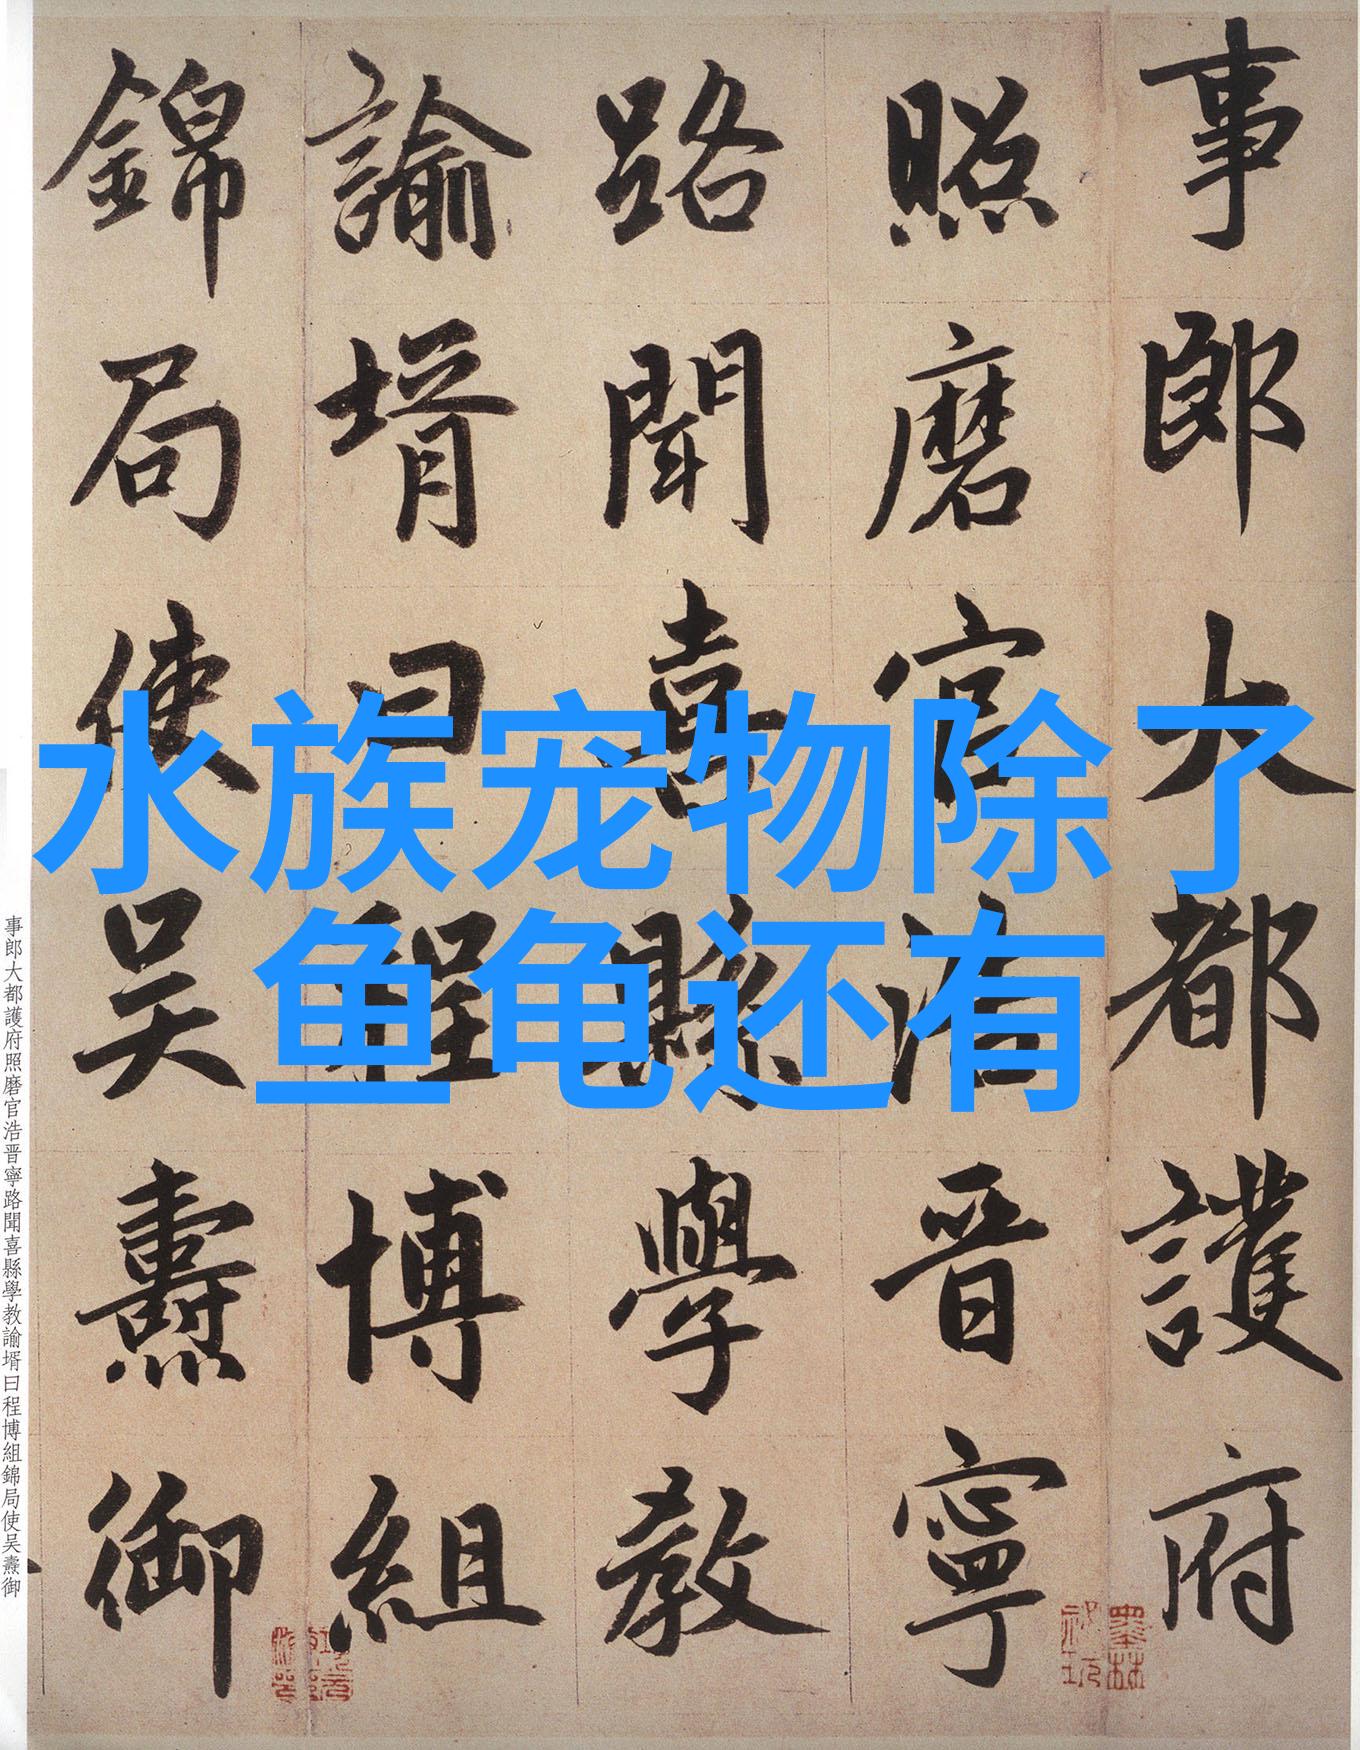 水族宠物除了
鱼龟还有
事郎大都護府
照磨官浩晋寧
路聞喜縣學教
諭壻曰程博組
錦局使吴燾御
事郎大都護府照磨官浩晋寧路聞喜縣學教諭壻曰程博組錦局使吴燾御